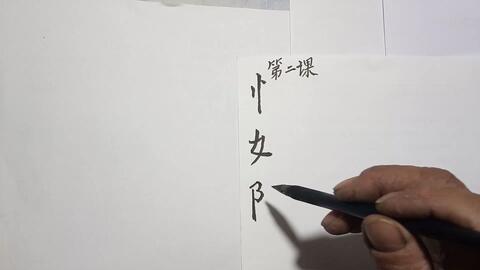 第二课
忄
女
阝